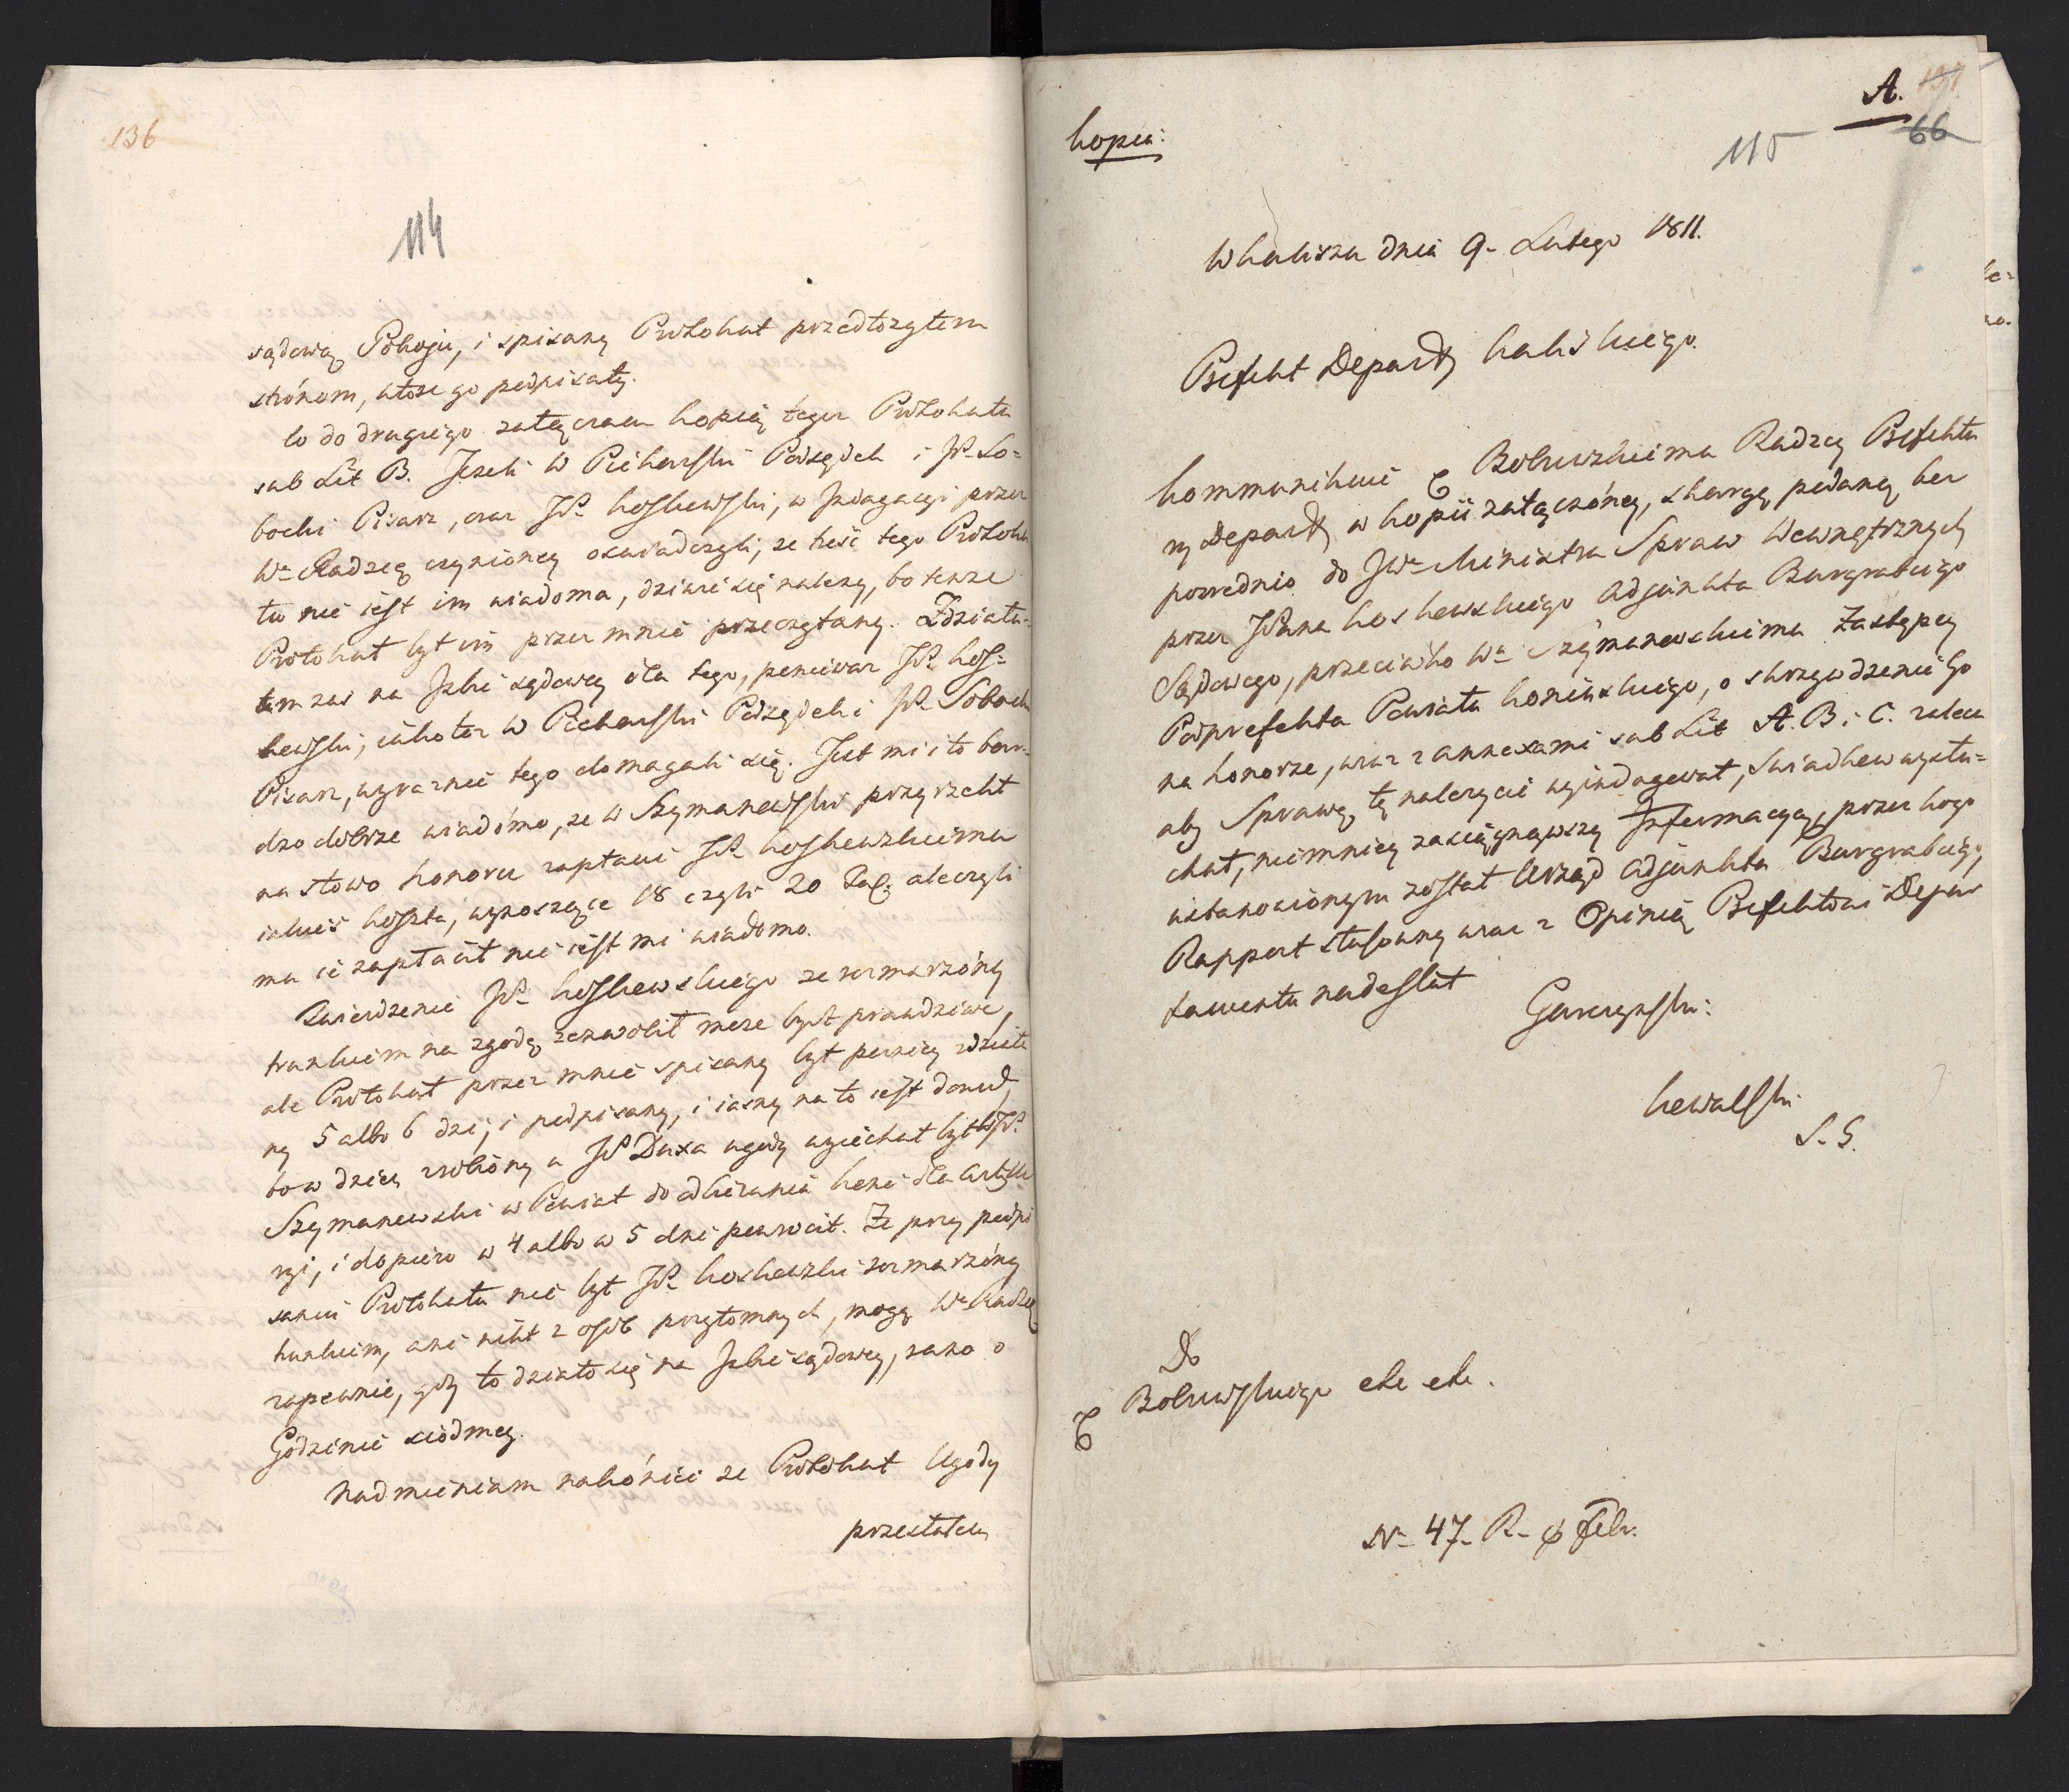 136
114
sądową Pokoju, i spisany Protokuł przedłożyłem
strónom, które go podpisały.
Co do drugiego załączam kopią tegoż Protokułu
sub Lit B. Jeżeli W Piekarski Podsędek i JP. So=
bocki Pisarz, oraz JP. Koszkewski, w Indagacyi przez
Wo Radzcę czynionéy oświadczyli, że treść tego Protoku
łu nie iest im wiadoma, dziwić się należy, bo tenże
Protokuł był im przezemnie przeczytany. Zdziała=
łem zaś na Izbie sądowéy dla tego, ponieważ JP. Kosz=
kewski, iako też W Piekarski Podsędek i JP. Sobocki
Pisarz, wyraźnie tego domagali się. Jest mi i to bar=
dzo dobrze wiadómo, że W Szymanewski przyrzekł
na słowo honoru zapłacić JP. Koszkewskiemu
iakieś koszta, wynoszące 18 czyli 20 Tal: ale czyli
ma ie zapłacił nie iest mi wiadomo.
Twierdzenie JP. Koszkewskiego że rozmarzóny
trunkiem na zgodę zezwolił może bydź prawdziwe,
ale Protokuł przez mnie spisany był poźniéy w dzieci
ny 5 albo 6 dzi; i podpisany, i iasny na to iest dowód,
bo w dzień zrobióny u JP Daxa ugody wyiechał był W JP.
Szymanewski w Powiat do odbierania koni dla Artylle
ryi, i dopiero w 4 albo w 5 dni powrócił. Że przy podpi
saniu Protokułu nie był JP. Koszkewski rozmarzóny
trunkiem, ani nikt z osób przytomnych, mogę Wo Radzcę
zapewnić, gdyż to działo się na Izbie sądowéy, rano o
Godzinie siódméy.
Nadmieniam nakóniec że Protokuł Ugody
przesłałem
A.
137
66
115
Kopia:
W Kaliszu dnia 9. Lutego 1811.
Prefekt Depart Kaliskiego.
Kommunikuie Bobrowskiemu Radzcy Prefektu
ry Depart w kopii załączónéy, skargę podanéy bez
pośrednio do JWo Ministra Spraw Wewnętrznych
przez JPana Koskewskiego Adjunkta Burgrabiego
Sądowego, przeciwko Wo Szymanewskiemu Zastępcy
Podprefekta Powiatu Konińskiego, o skrzywdzenie Go
na honorze, wraz z annexami sub Lit A. B. i C. zaleca
aby Sprawę tę należycie wyindagował, Swiadkow wysłu=
chał, niemniéy zasięgnąwszy Informacyą, przez kogo
ustanowionym został Urząd Adjunkta Burgrabiego,
Rapport stosowny wraz z Opinią Prefektowi Depar
tamentu nadesłał
Garczyński:
Kowalski
S. G.
Do
Bobrowskiego etc etc.
No 47. R. Febr.